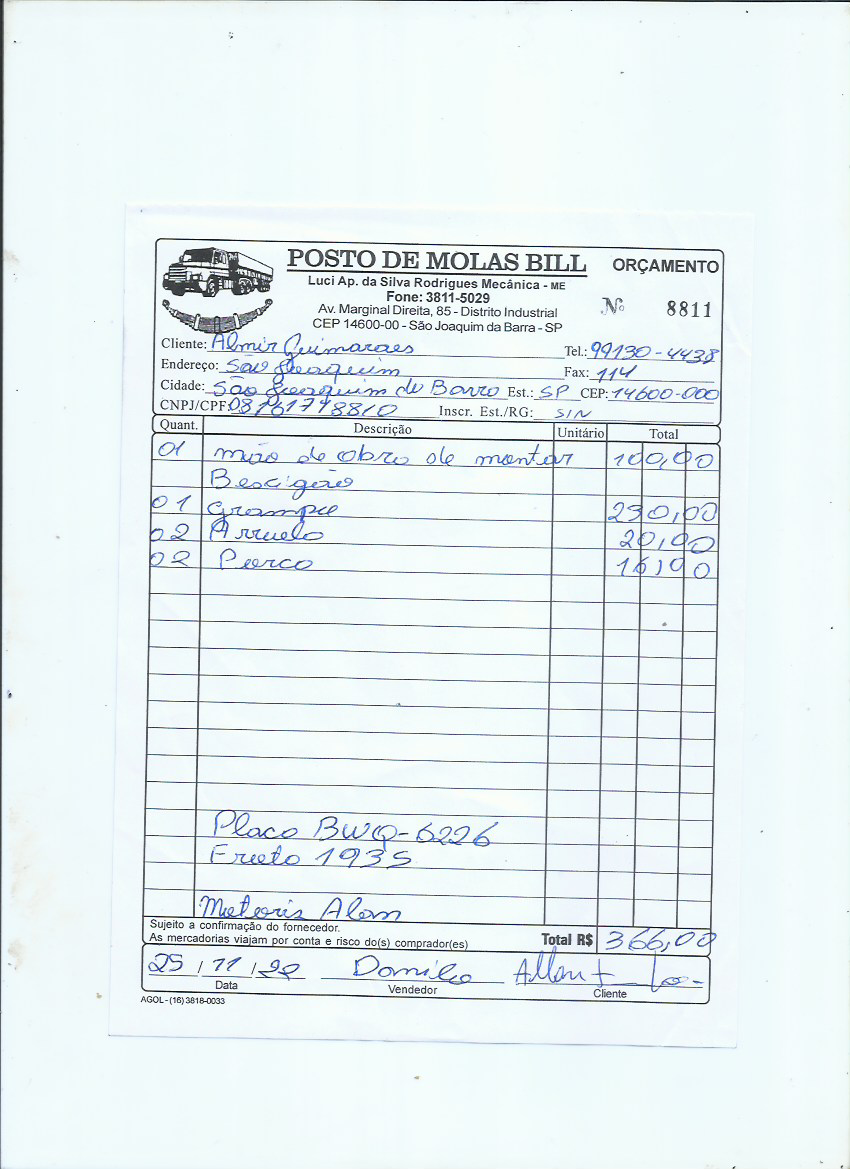 POSTO DE MOLAS BILL
ORÇAMENTO
Luci Ap. da Silva Rodrigues Mecânica - ME
Fone: 3811-5029
Av. Marginal Direita, 85 - Distrito Industrial
CEP 14600-00 - São Joaquim da Barra - SP
Nº 8811
Cliente: Almir Guimaraes Tel.: 99130-4438
Endereço: São Joaquim Fax: 114
Cidade: São Joaquim de Barra Est.: SP CEP: 14600-000
CNPJ/CPF: Inscr. Est./RG: S/N
Quant. Descrição Unitário Total
01 mão de obra de montar 100,00
01 Grampo 230,00
02 Arruela 20,00
02 Porca 16,00
Placa BWQ-6226
Frota 1935
Alan
Sujeito a confirmação do fornecedor.
As mercadorias viajam por conta e risco do(s) comprador(es)
Total R$ 366,00
25 / 11 / 20 Danilo
Data Vendedor Cliente
AGOL - (16) 3818-0033